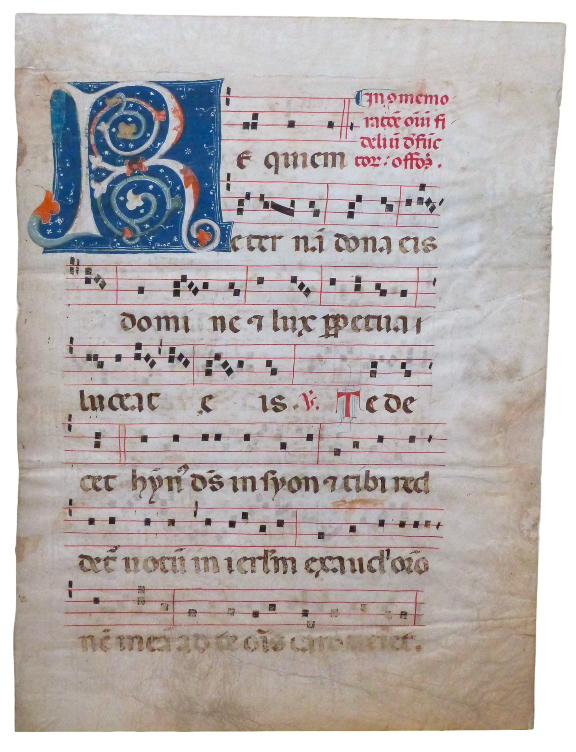 In 9memo
ratōe oīū fi
deliū d̄fūc
tor: offoȝ.
R E quiem
eter nā dona eis
domi ne ⁊ lux ꝑpetua
luceat e is. ℣. Te de
cet hȳn⁹ d̄s in syon ⁊ tibi red
det᷑ uotū in ierl̄m exaudi orō
nē meā ad te oīs caro ueniet.